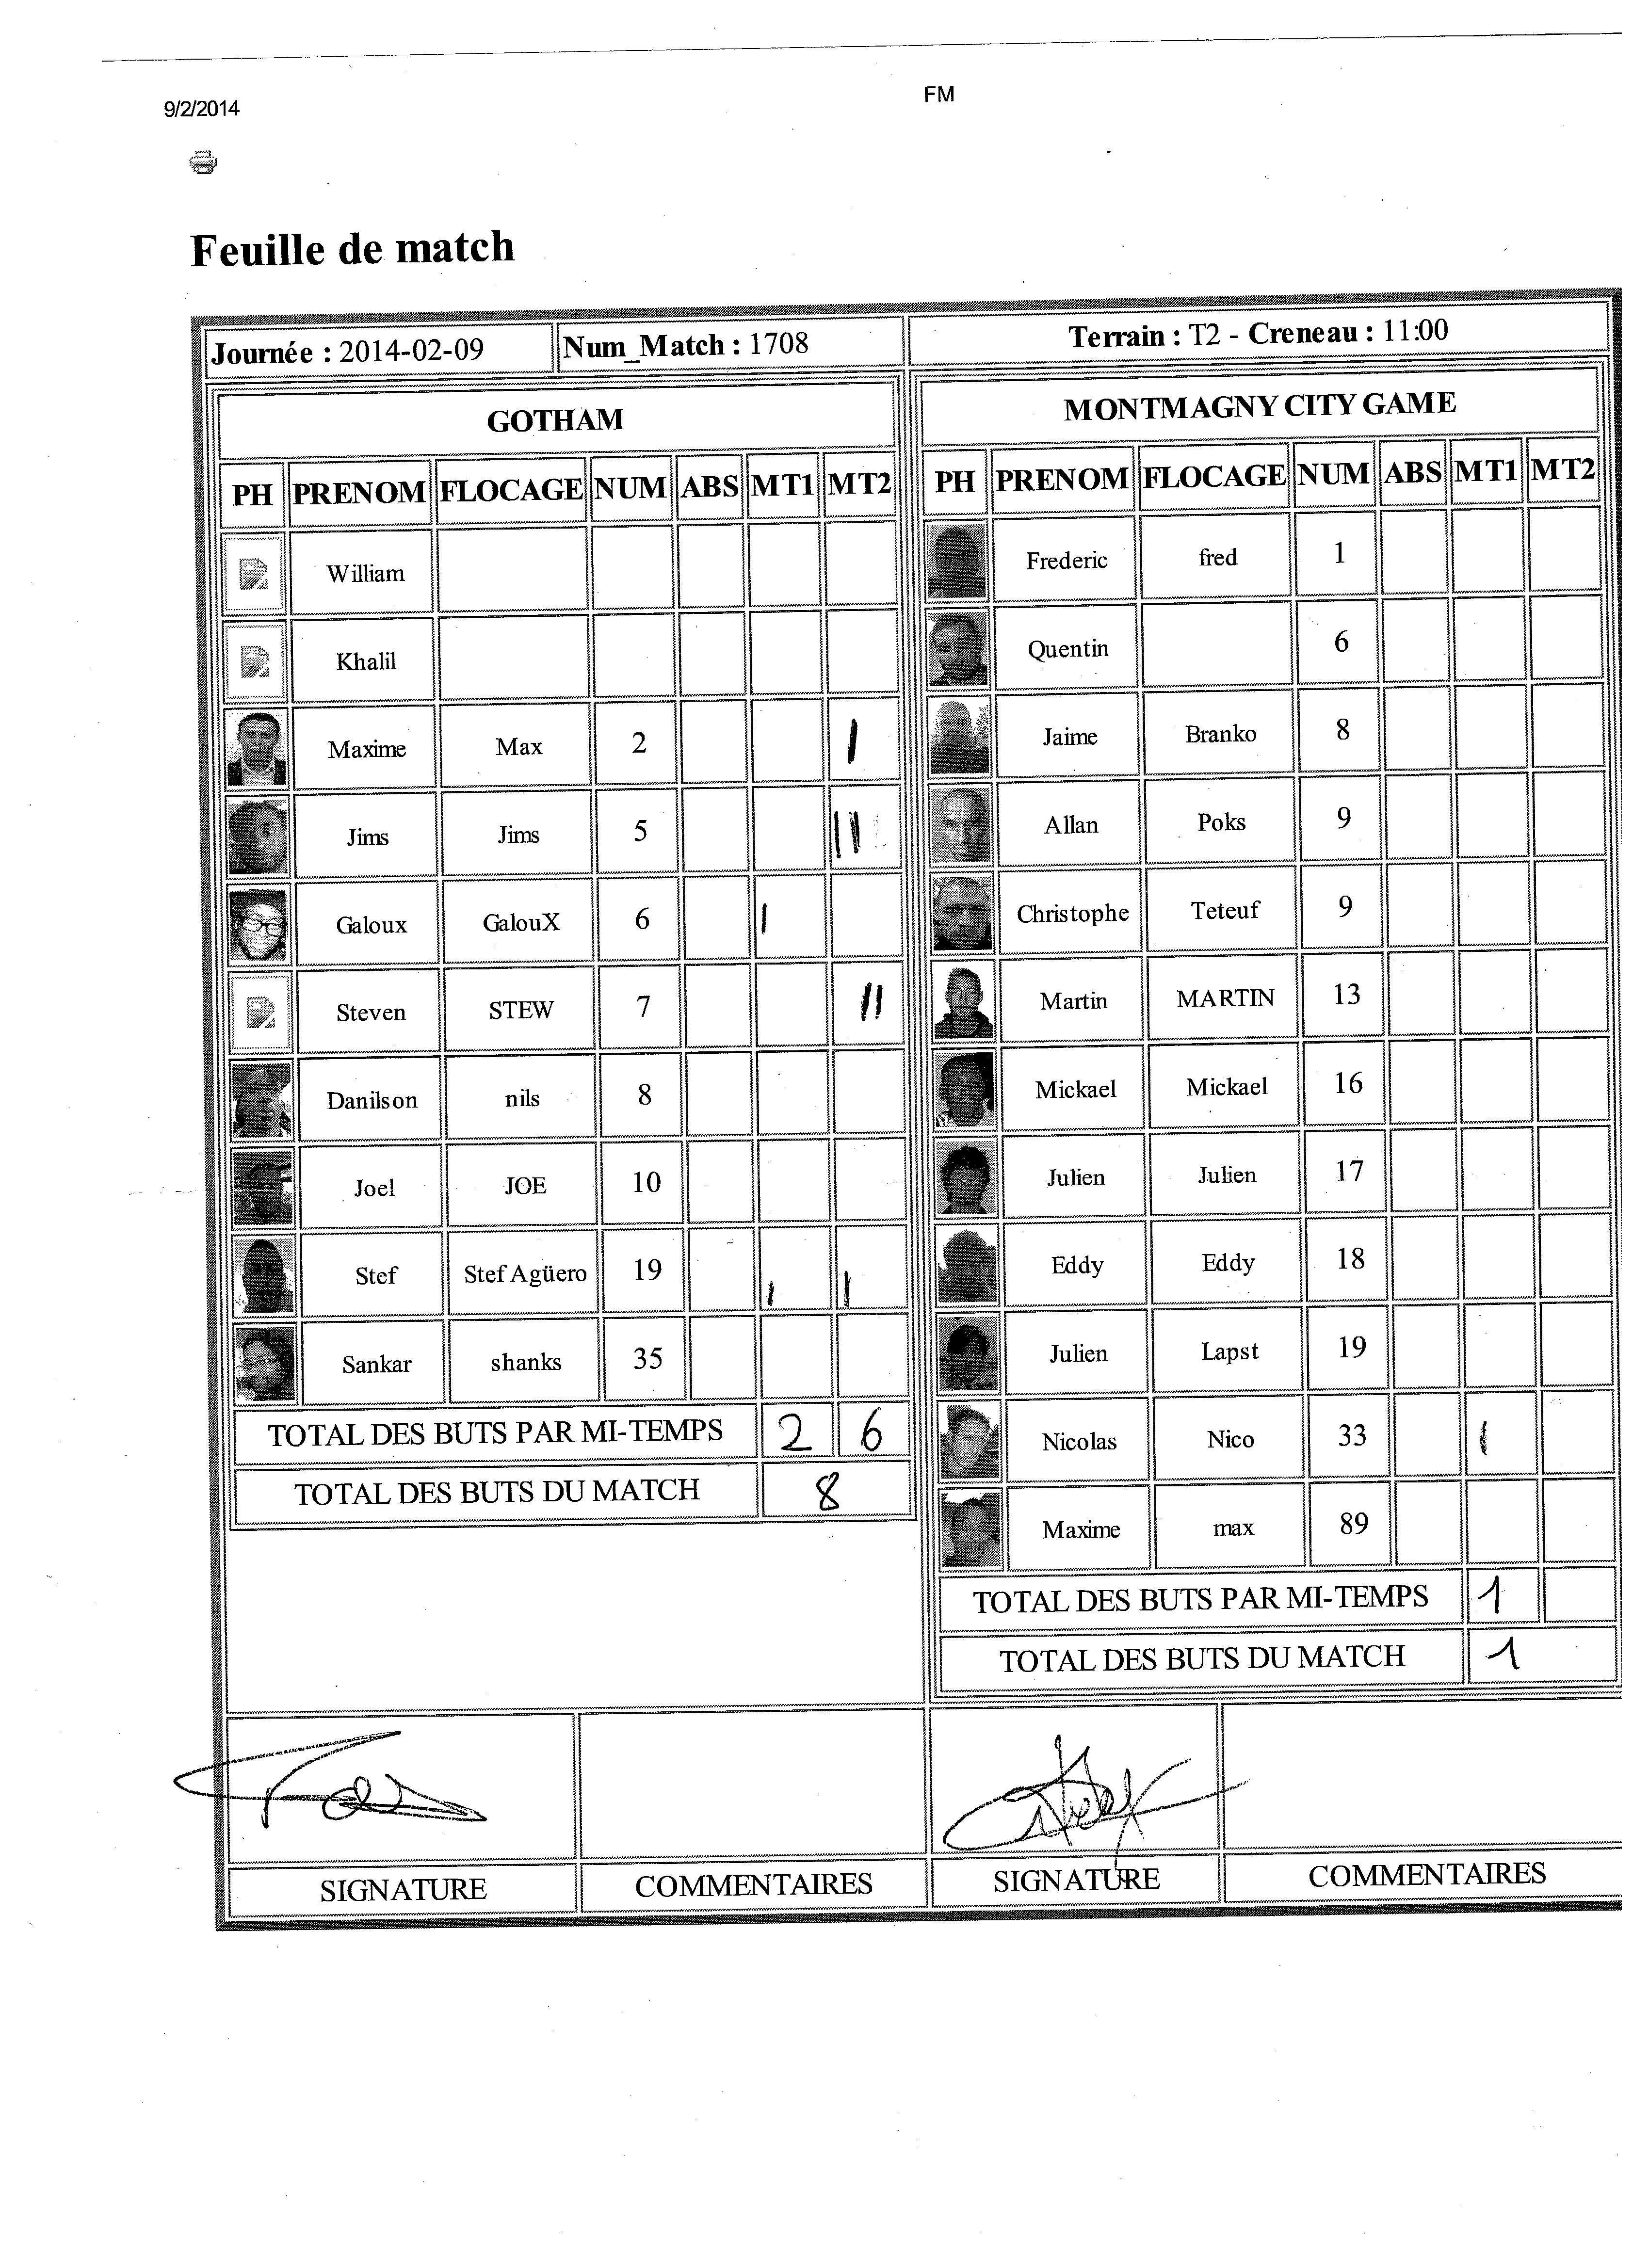 9/2/2014 FM
Feuille de match
Journée : 2014-02-09 Num_Match : 1708 Terrain : T2 - Creneau : 11:00
GOTHAM
PH PRENOM FLOCAGE NUM ABS MT1 MT2
William
Khalil
Maxime Max 2 I
Jims Jims 5 II
Galoux GalouX 6 I
Steven STEW 7 II
Danilson nils 8
Joel JOE 10
Stef Stef Agüero 19 I I
Sankar shanks 35
TOTAL DES BUTS PAR MI-TEMPS 2 6
TOTAL DES BUTS DU MATCH 8
SIGNATURE COMMENTAIRES
MONTMAGNY CITY GAME
PH PRENOM FLOCAGE NUM ABS MT1 MT2
Frederic fred 1
Quentin 6
Jaime Branko 8
Allan Poks 9
Christophe Teteuf 9
Martin MARTIN 13
Mickael Mickael 16
Julien Julien 17
Eddy Eddy 18
Julien Lapst 19
Nicolas Nico 33 I
Maxime max 89
TOTAL DES BUTS PAR MI-TEMPS 1
TOTAL DES BUTS DU MATCH 1
SIGNATURE COMMENTAIRES